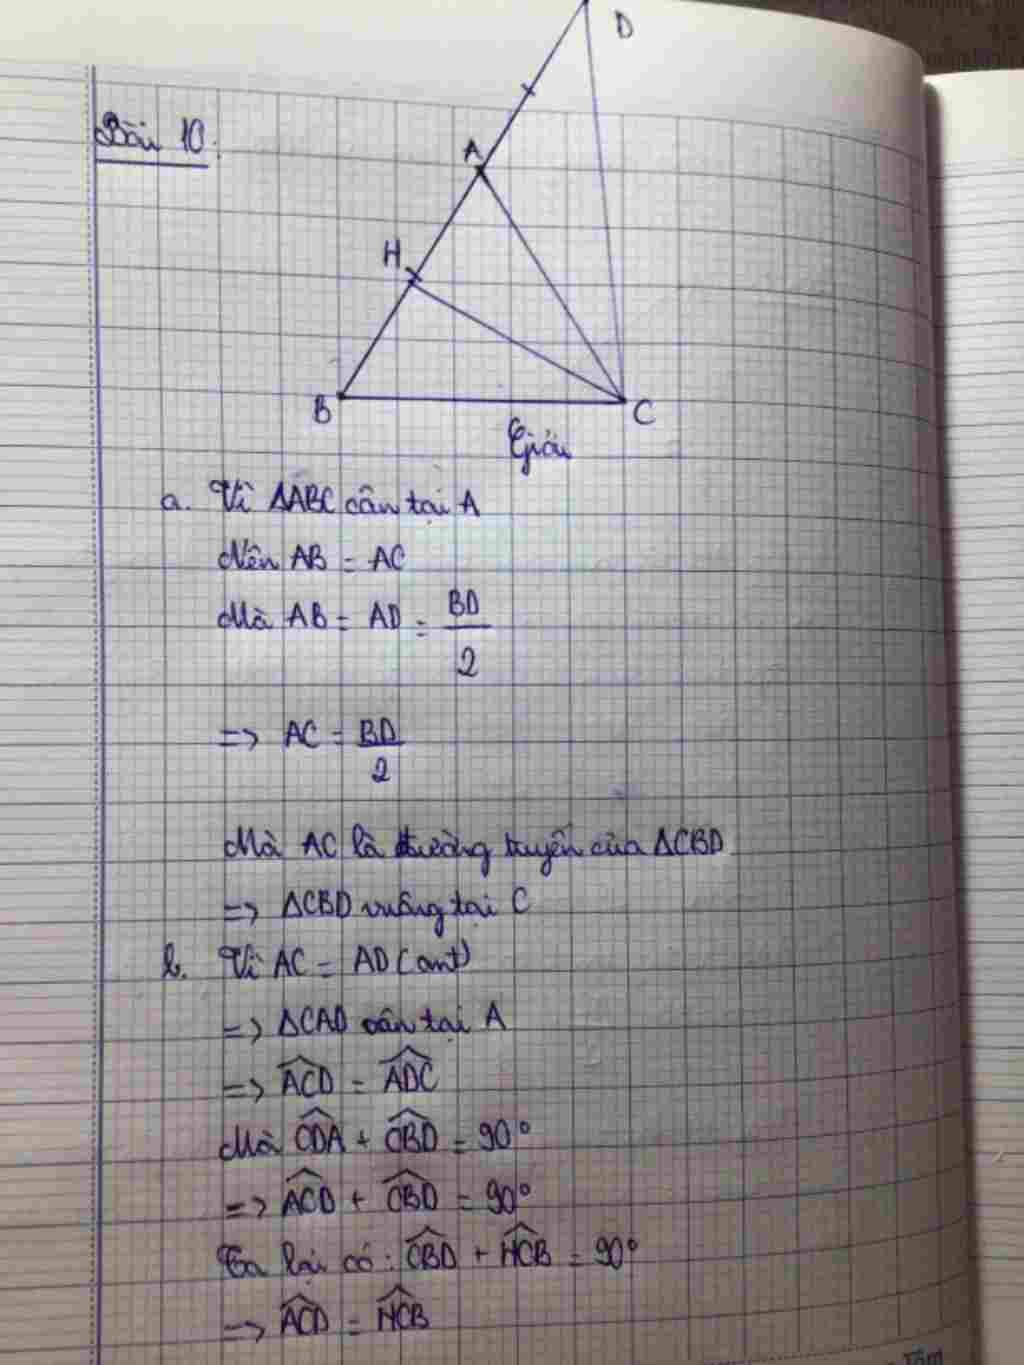 D
Bài 10.
A
H
B
C
Giải
a. Vì ΔABC cân tại A
Nên AB = AC
Mà AB = AD = BD/2
=> AC = BD/2
Mà AC là đường tuyến của ΔCBD
=> ΔCBD vuông tại C
b. Vì AC = AD (cmt)
=> ΔCAD cân tại A
=> \widehat{ACD} = \widehat{ADC}
Mà \widehat{CDA} + \widehat{CBD} = 90°
=> \widehat{ACD} + \widehat{CBD} = 90°
Ta lại có: \widehat{CBD} + \widehat{HCB} = 90°
=> \widehat{ACD} = \widehat{HCB}